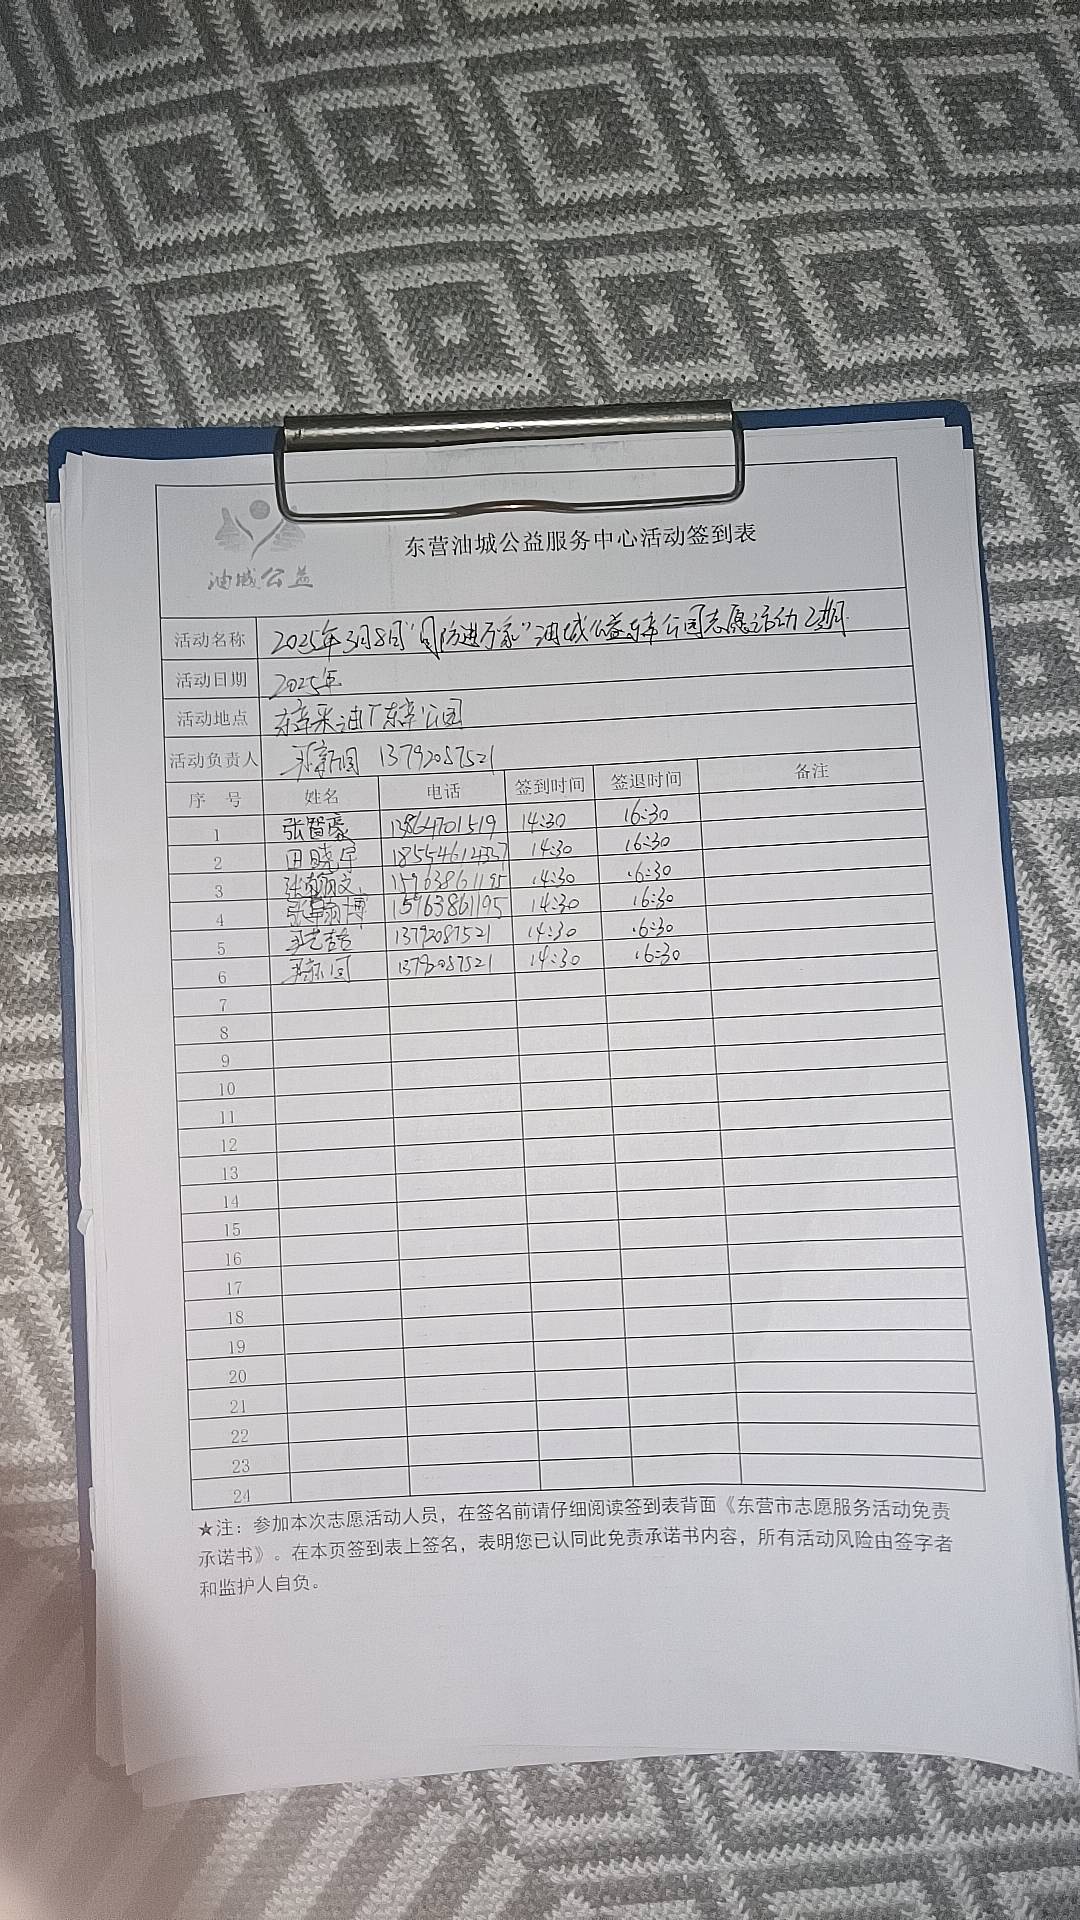 油城公益
东营油城公益服务中心活动签到表
活动名称 2025年3月8日"国防进万家"油城公益东辛公园志愿活动2期
活动日期 2025年
活动地点 东辛采油厂东辛公园
活动负责人 13792087521
序号 姓名 电话 签到时间 签退时间 备注
1 张智豪 13864701519 14:30 16:30
2 田晓宇 18554612337 14:30 16:30
3 张翰文 15963861195 14:30 16:30
4 张翰博 15963861195 14:30 16:30
5 13792087521 14:30 16:30
6 13792087521 14:30 16:30
7
8
9
10
11
12
13
14
15
16
17
18
19
20
21
22
23
24
★注：参加本次志愿活动人员，在签名前请仔细阅读签到表背面《东营市志愿服务活动免责
承诺书》。在本页签到表上签名，表明您已认同此免责承诺书内容，所有活动风险由签字者
和监护人自负。